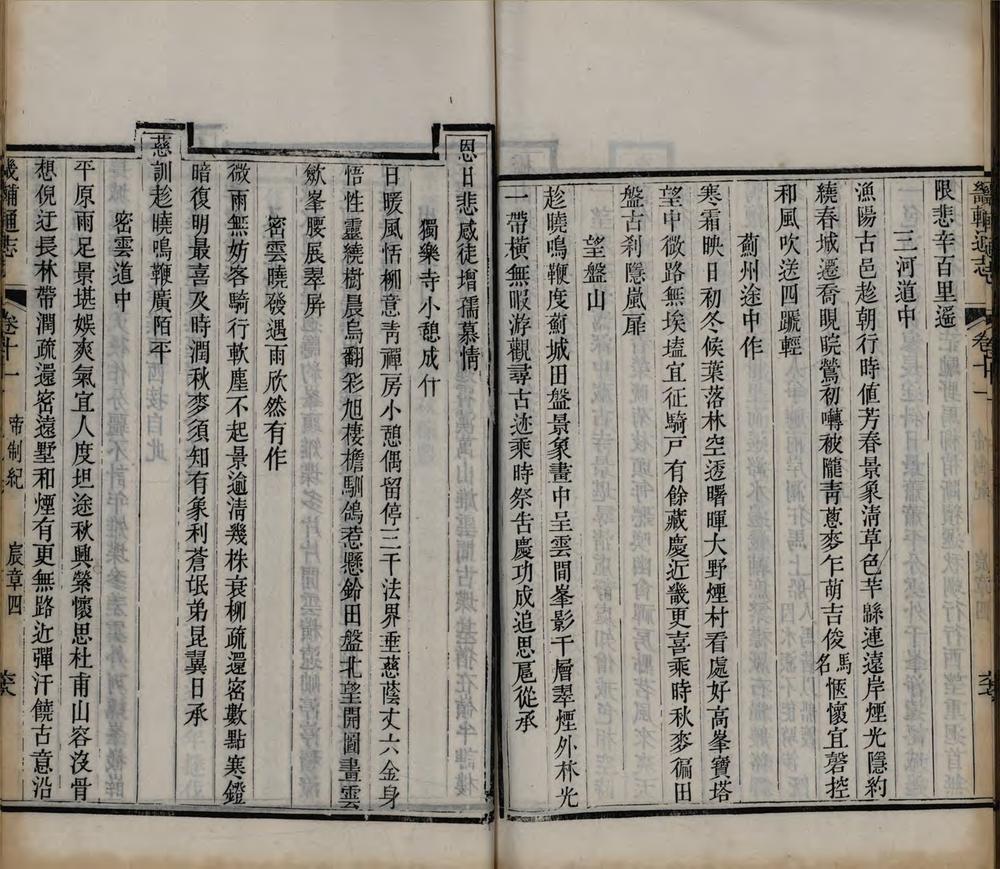 畿輔通志
卷十一
限悲辛百里遥
三河道中
漁陽古邑趁朝行時值芳春景象清草色芊緜連遠岸煙光隱約
繞春城遷喬睍睆鶯初囀被隴青蔥麥乍萌吉俊馬名愜懷宜罄控
和風吹送四蹏輕
薊州途中作
寒霜映日初冬候葉落林空透曙暉大野煙村看處好高峯寶塔
望中微路無埃壒宜征騎戸有餘藏慶近畿更喜乘時秋麥徧田
盤古刹隱嵐扉
望盤山
趁曉鳴鞭度薊城田盤景象畫中呈雲間峯影千層翠煙外林光
一帶橫無暇游觀尋古迹乘時祭告慶功成追思扈從承
恩日悲感徒增孺慕情
獨樂寺小憩成什
日暖風恬柳意青禪房小憩偶留停三千法界垂慈蔭丈六金身
悟性靈繞樹晨烏翻彩旭棲檐馴鴿惹懸鈴田盤北望開圖畫雲
斂峯腰展翠屏
密雲曉發遇雨欣然有作
微雨無妨客騎行軟塵不起景逾清幾株衰柳疏還密數點寒鐙
暗復明最喜及時潤秋麥須知有象利蒼氓弟昆翼日承
慈訓趁曉鳴鞭廣陌平
密雲道中
平原雨足景堪娛爽氣宜人度坦途秋興縈懷思杜甫山容沒骨
想倪迂長林帶潤疏還密遠墅和煙有更無路近彈汗饒古意沿
畿輔通志
卷十一
帝制紀
宸章四